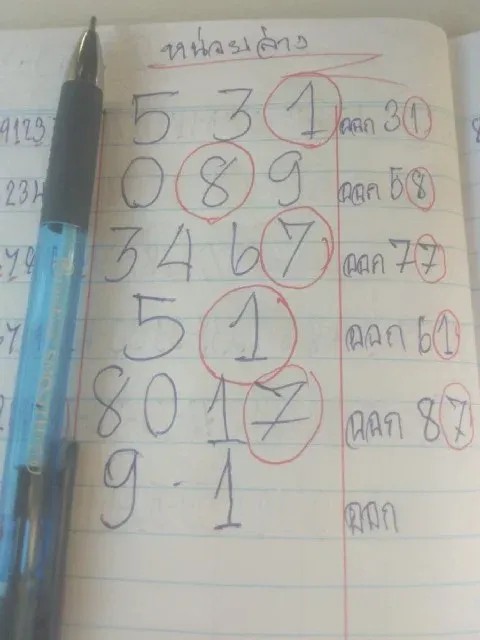 หน่วยล่าง
9123 5 3 1 ออก 31
234 0 8 9 ออก 58
3 4 6 7 ออก 77
5 1 ออก 61
8 0 1 7 ออก 87
9 - 1 ออก